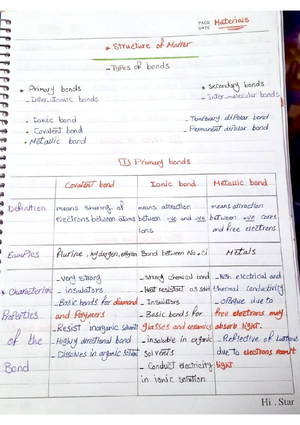 PAGE
DATE
Materials
* Structure of Matter
- Types of bonds
* Primary bonds
- Inter-atomic bonds
- Ionic bond
- Covalent bond
- Metallic bond
* Secondary bonds
- Inter-molecular bonds
- Temporary dipolar bond
- Permanent dipolar bond
1 Primary bonds
Covalent bond
Ionic bond
Metallic bond
Definition
means sharing of
electrons between atoms
means attraction
between -ve and +ve
ions
means attraction
between +ve cores
and free electrons
Examples
Flurine, hydrogen, oxygen
Bond between Na, Cl
Metals
* Characteristic
Properties
of the
Bond
- very strong
- insulators
- Basic bonds for diamond
and Polymers
- Resist inorganic
- Highly directional bond
- Dissolves in organic
- strong chemical bond
- Heat resistant
- Insulators
- Basic bonds for
glasses and ceramics
- insoluble in organic
solvents
- Conduct electricity
in ionic solution
- High electrical and
thermal conductivity
- Opaque due to
free electrons may
absorb light.
- Reflective of
due to electrons
light
Hi . Star